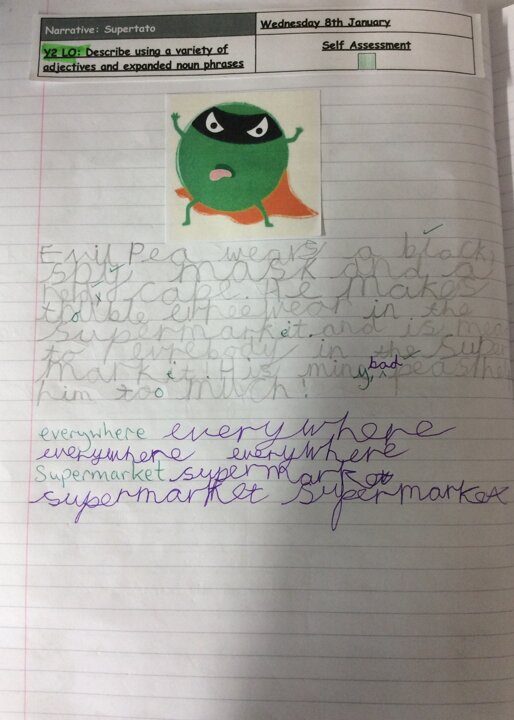 Narrative: Supertato
Wednesday 8th January
Y2 LO: Describe using a variety of
adjectives and expanded noun phrases
Self Assessment
Evil Pea wears a black
spy mask and a
red cape. He makes
in the
supermarket. and is
to in the super
market. it is bad
him too much!
everywhere everywhere
everywhere everywhere
Supermarket supermarket
supermarket supermarket